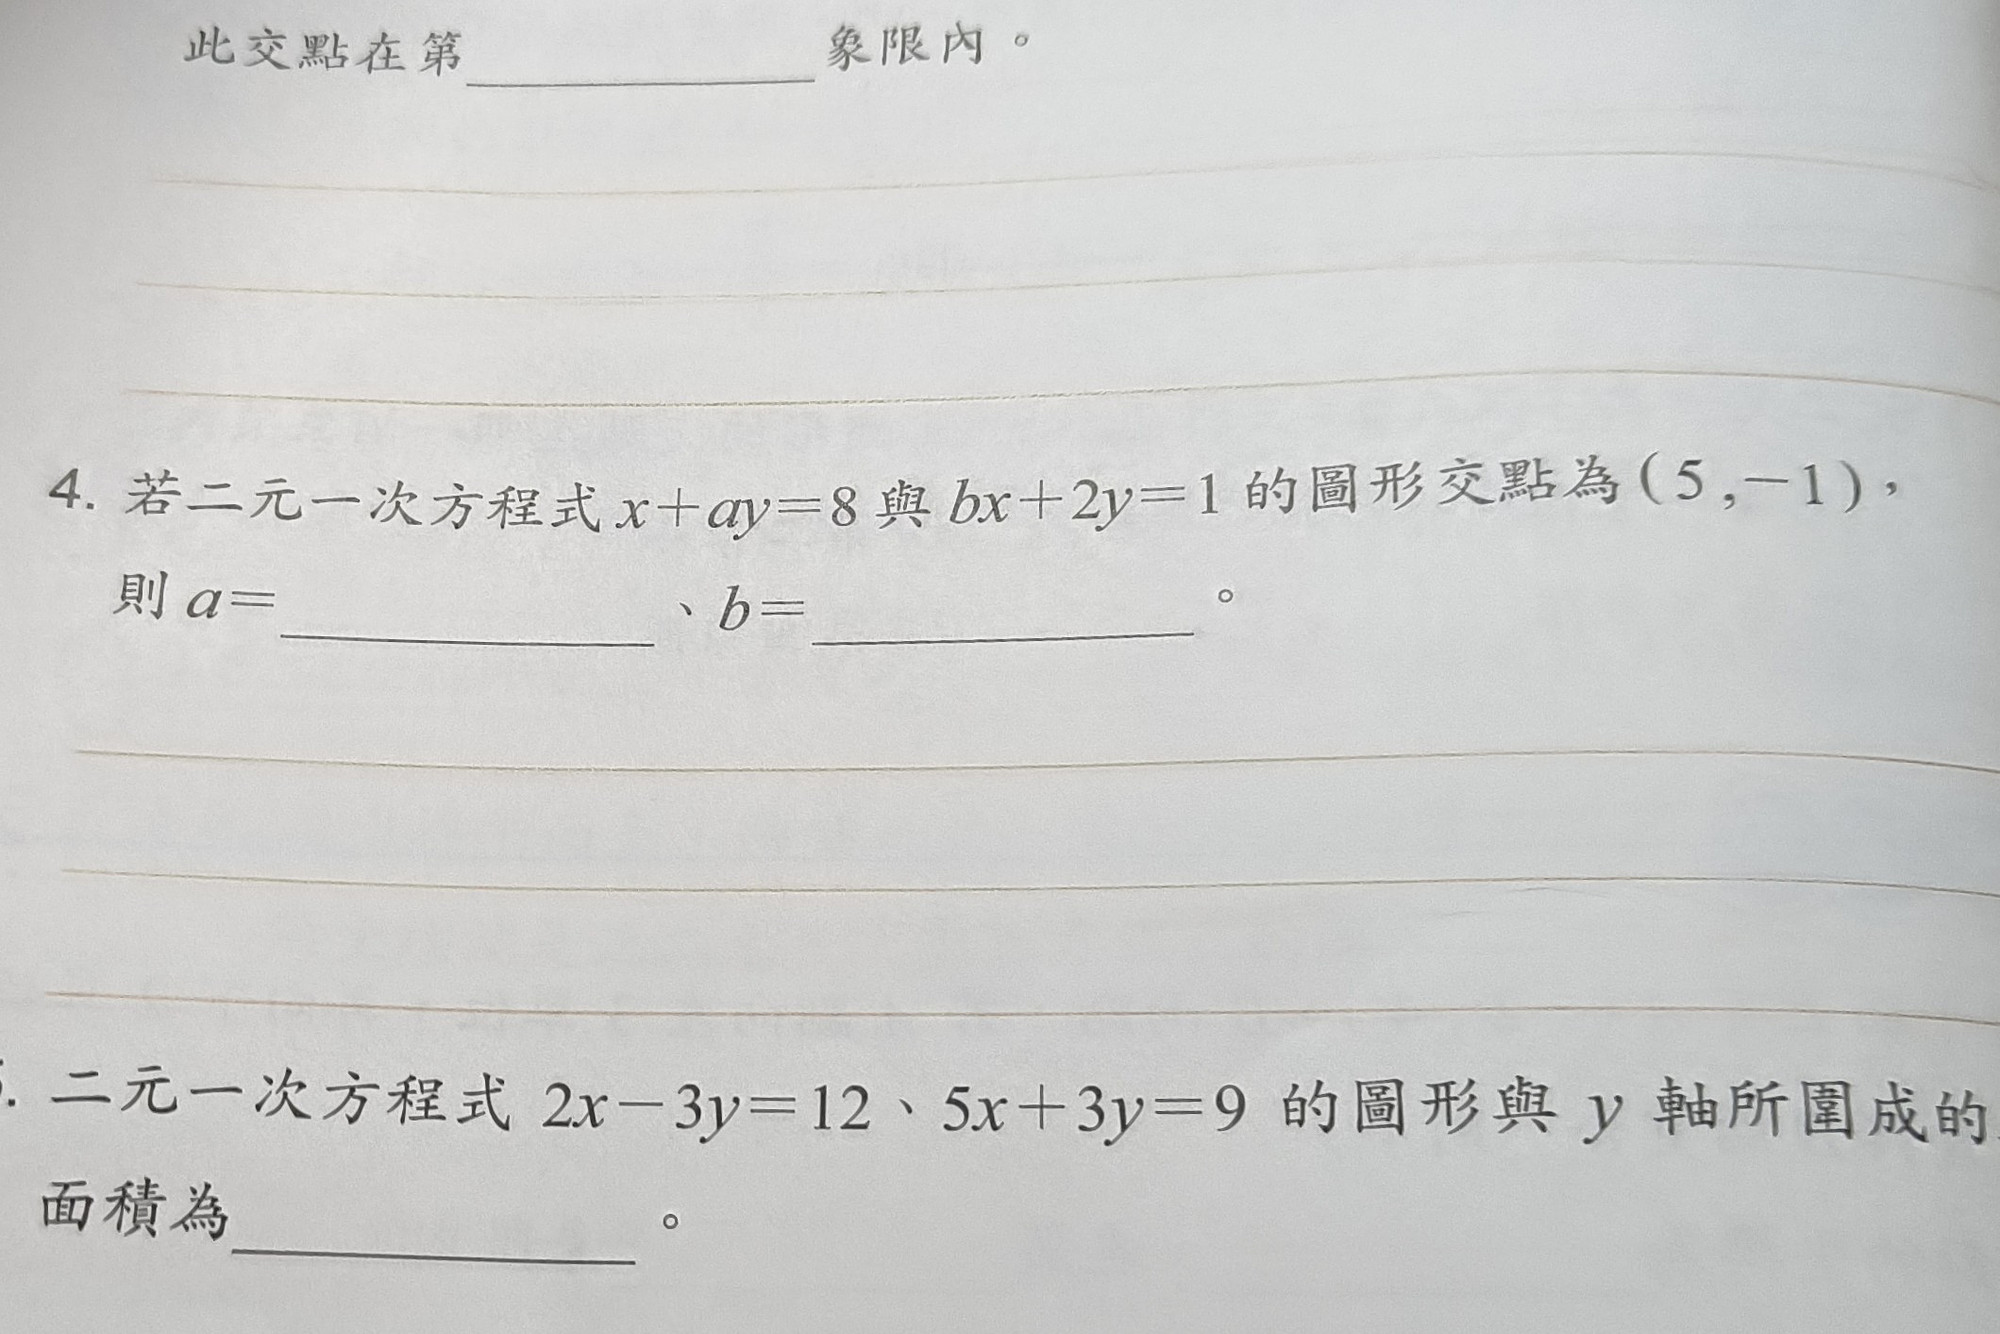 此交點在第__________象限內。
4. 若二元一次方程式 x+ay=8 與 bx+2y=1 的圖形交點為(5,-1),
則 a=__________、b=__________。
. 二元一次方程式 2x-3y=12、5x+3y=9 的圖形與 y 軸所圍成的
面積為__________。